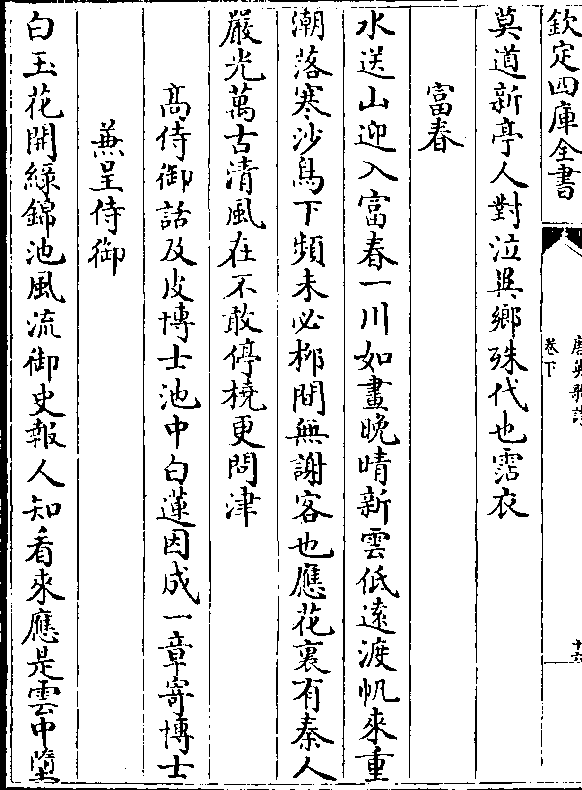 欽定四庫全書
卷下
莫道新亭人對泣異鄉殊代也霑衣
富春
水送山迎入富春一川如畫晚晴新雲低遠渡帆來重
潮落寒沙鳥下頻未必栁間無謝客也應花裏有秦人
嚴光萬古清風在不敢停橈更問津
髙侍御話及皮博士池中白蓮因成一章寄博士
兼呈侍御
白玉花開綠錦池風流御史報人知看來應是雲中墮